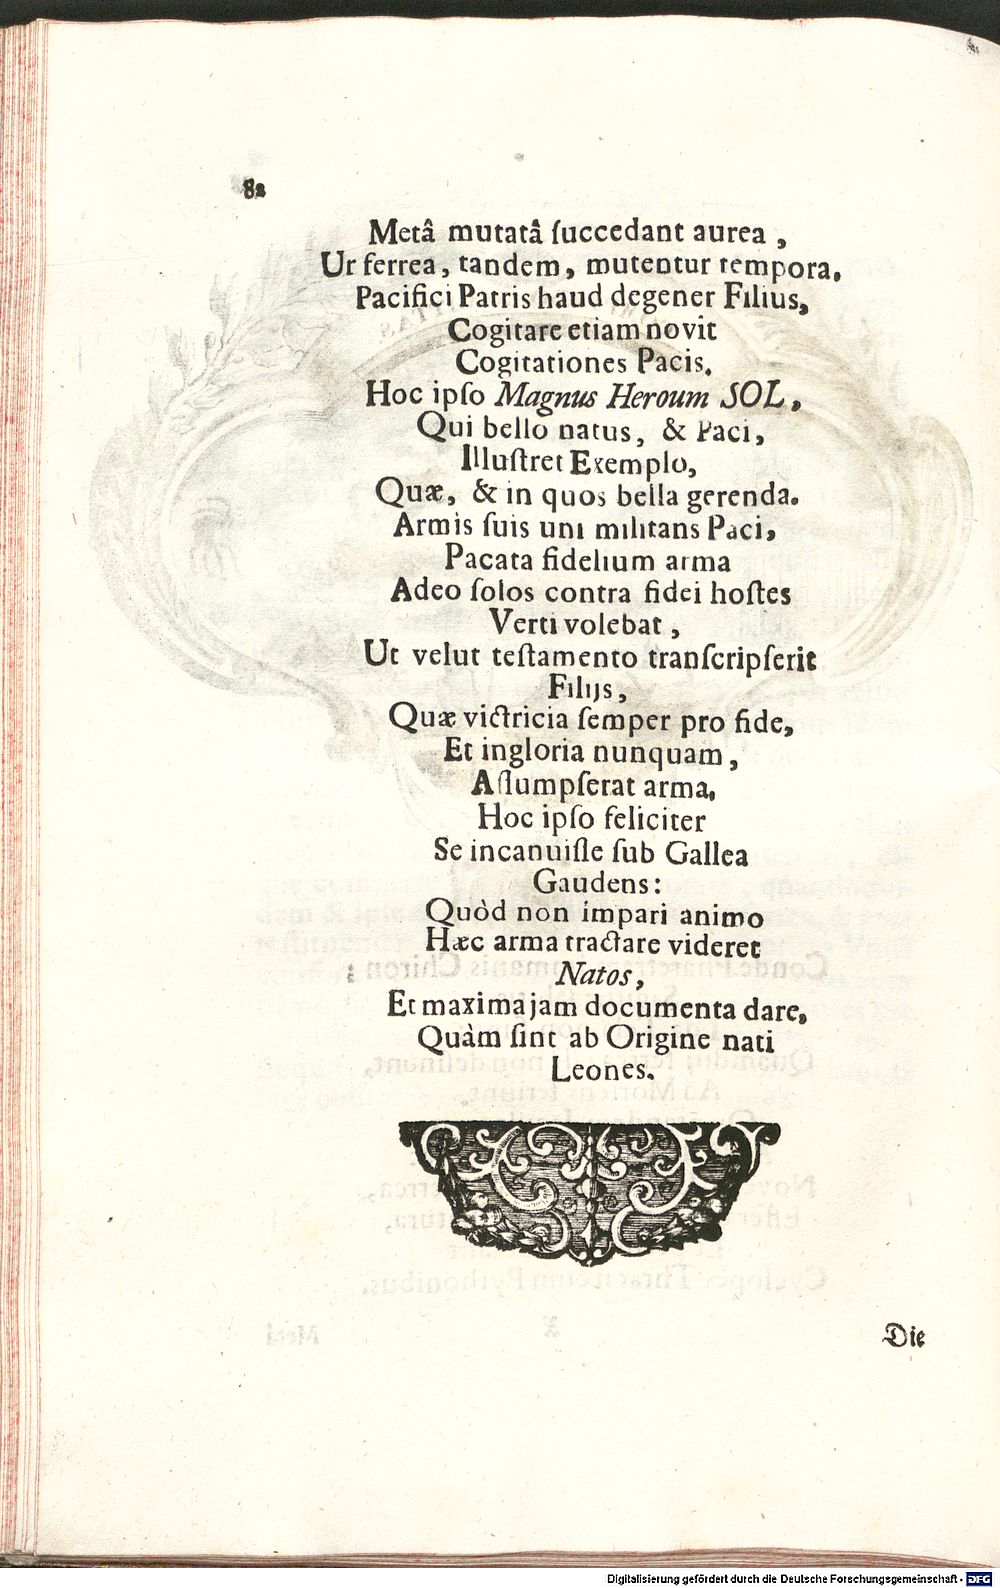 82
Metâ mutatâ ſuccedant aurea ,
Ut ferrea, tandem, mutentur tempora,
Pacifici Patris haud degener Filius,
Cogitare etiam novit
Cogitationes Pacis.
Hoc ipſo Magnus Heroum SOL,
Qui bello natus, & Paci,
Illuſtret Exemplo,
Quæ, & in quos bella gerenda.
Armis ſuis uni militans Paci,
Pacata fidelium arma
Adeo ſolos contra fidei hoſtes
Verti volebat ,
Ut velut teſtamento tranſcripſerit
Filijs ,
Quæ victricia ſemper pro fide,
Et ingloria nunquam ,
Aſſumpſerat arma.
Hoc ipſo feliciter
Se incanuiſſe ſub Gallea
Gaudens:
Quòd non impari animo
Hæc arma tractare videret
Natos,
Et maxima jam documenta dare,
Quàm ſint ab Origine nati
Leones.
Die
Digitalisierung gefördert durch die Deutsche Forschungsgemeinschaft - DFG